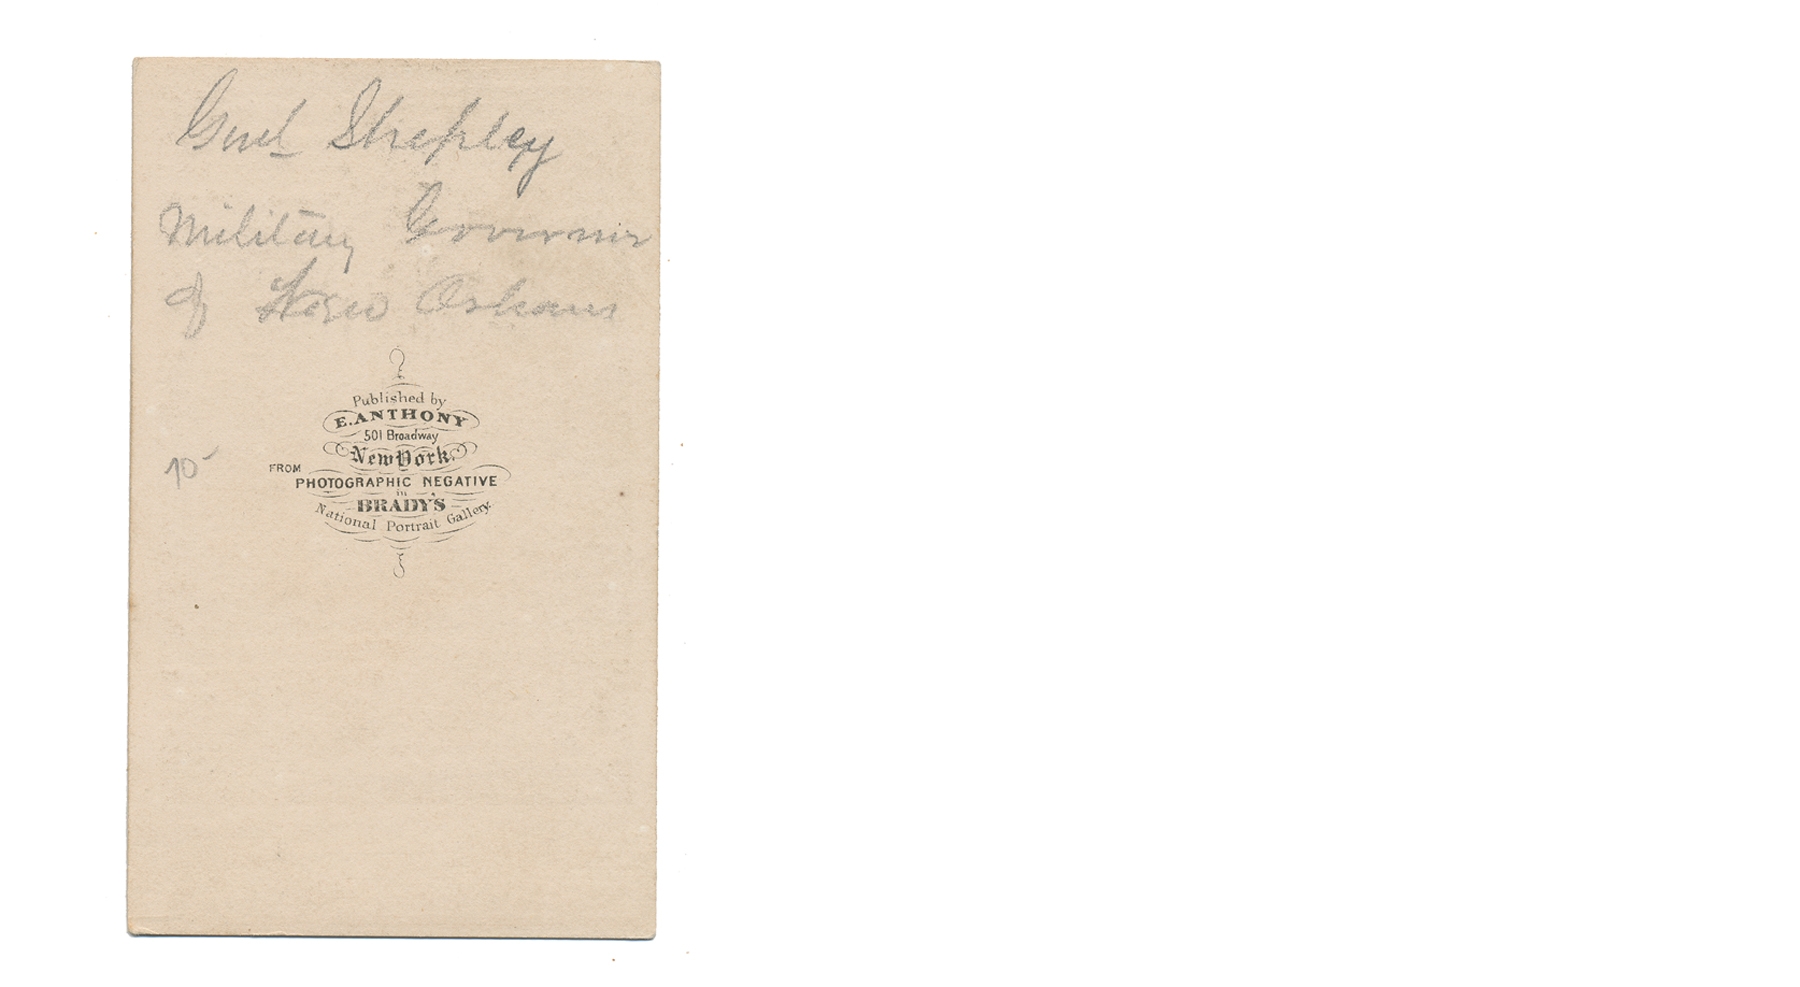 Genl Shepley
Military Governor
of New Orleans
Published by
E. ANTHONY
501 Broadway
New York.
10
FROM
PHOTOGRAPHIC NEGATIVE
in
BRADY'S
National Portrait Gallery.